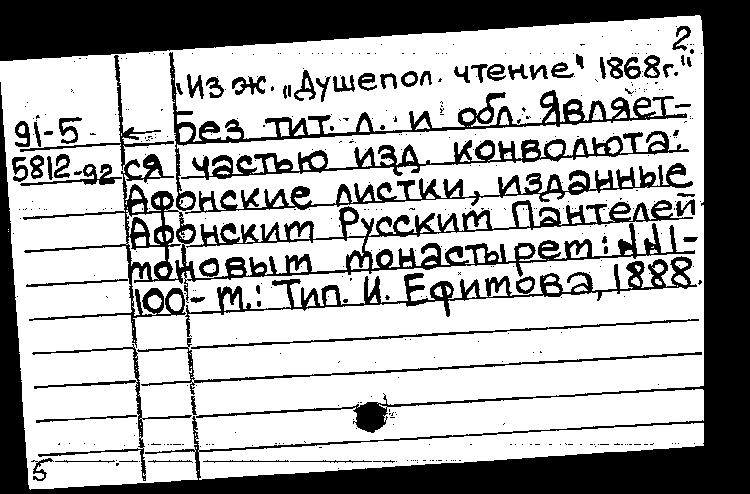 2.
"Из ж. „Душепол. чтение" 1868г."
91-5 ← Без тит. л. и обл. Являет-
5812-92 ся частью изд. конволюта:
Афонские листки, изданные
Афонским Русским Пантелей
моновым монастырем: №№1-
100 - М.: Тип. И. Ефимова, 1888.
5